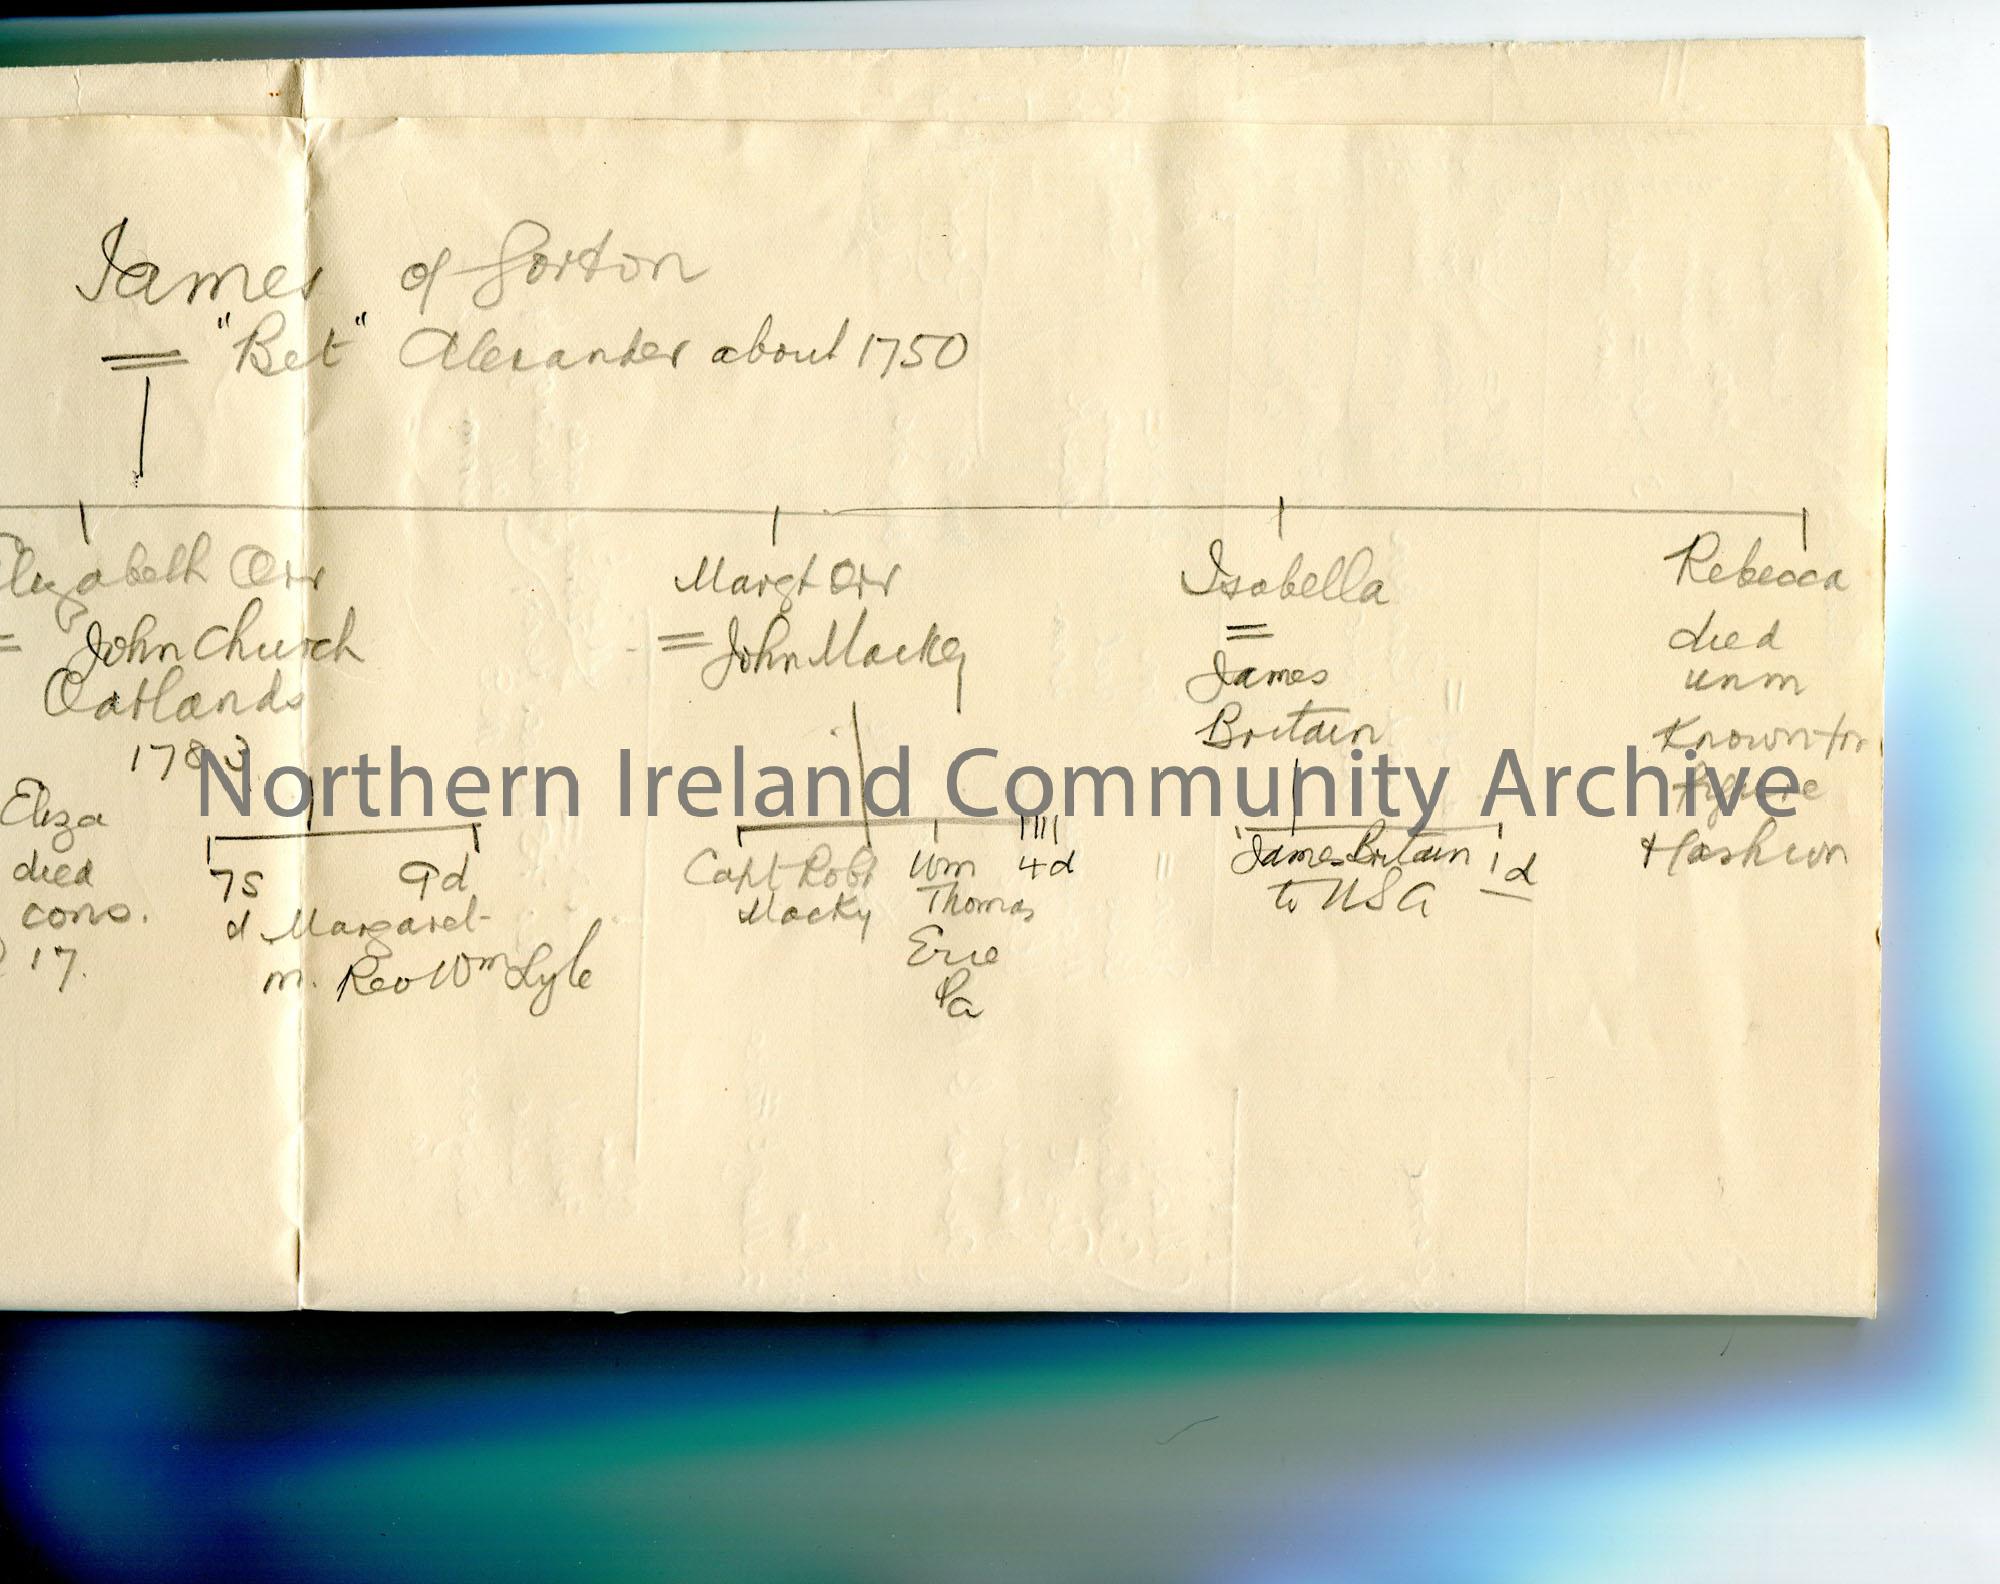 James of Gorton
= "Bet" Alexander about 1750
Elizabeth Orr
= John Church
Oatlands
1783
Eliza
died
cons.
17.
7s 9d
d Margaret
m. Rev Wm Lyle
Margt Orr
= John Macky
Capt Robt
Macky
Wm
Thomas
Erie
Pa
4d
Isabella
=
James
Britain
James Britain
to USA
1d
Rebecca
died
unm
Known for
figure
+ fashion
Northern Ireland Community Archive